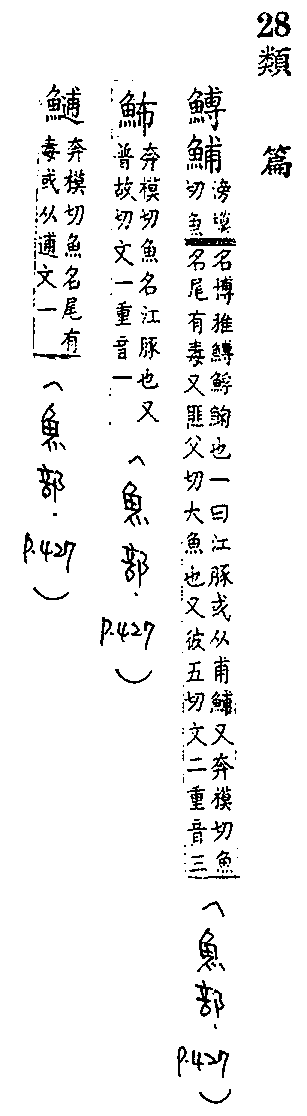 28 類篇
鯆
滂模
切魚
名博雅也一曰江豚或从甫又奔模切魚
名尾有毒又匪父切大魚也又彼五切文二重音三
(魚部.P.427)
䰽
奔模切魚名江豚也又
普故切文一重音一
(魚部.P.427)
奔模切魚名尾有
毒或从逋文一
(魚部.P.427)